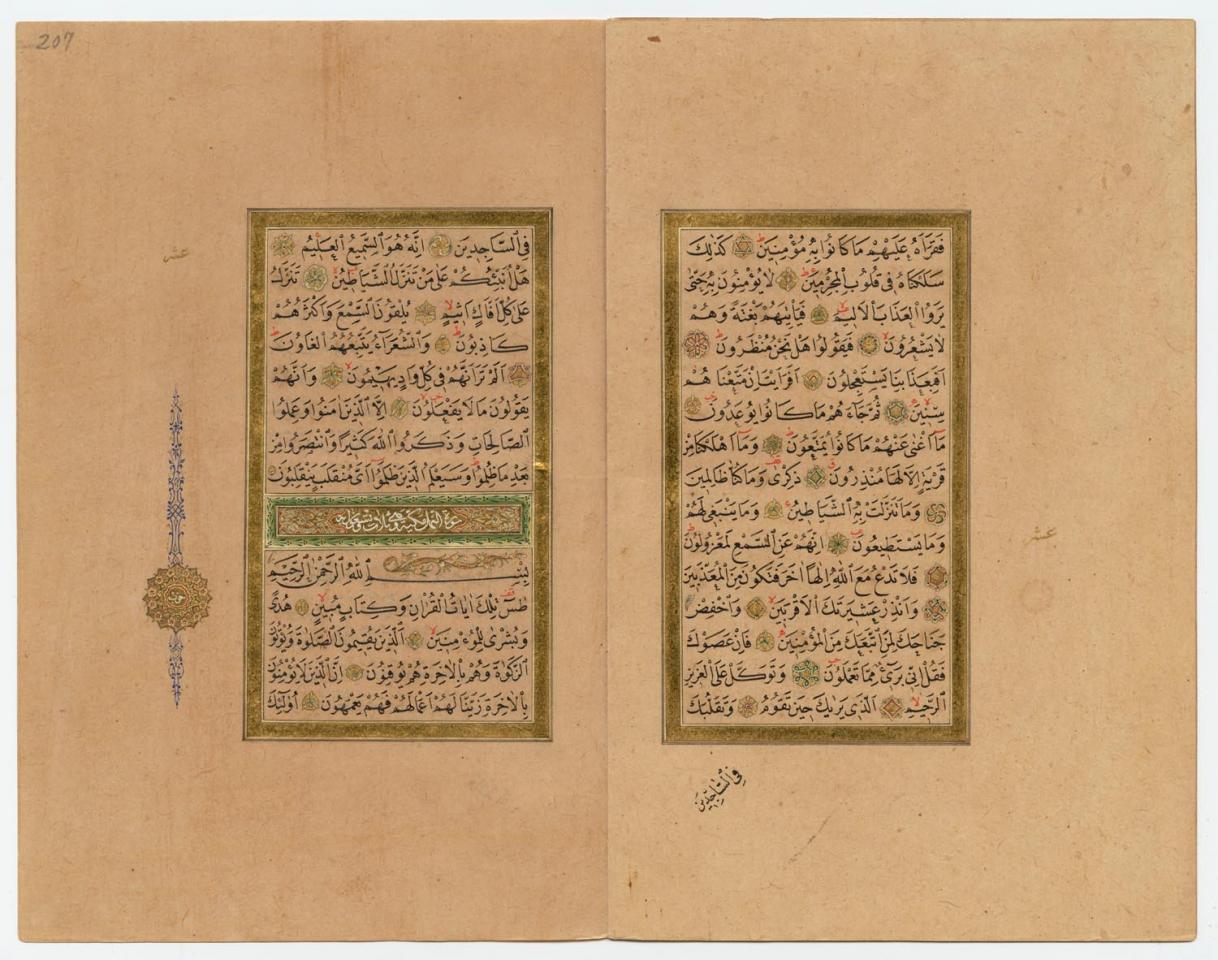 فَقَرَأَهُ عَلَيْهِمْ مَا كَانُوا بِهِ مُؤْمِنِينَ كَذٰلِكَ
سَلَكْنَاهُ فِي قُلُوبِ الْمُجْرِمِينَ لَا يُؤْمِنُونَ بِهِ حَتّٰى
يَرَوُا الْعَذَابَ الْاَلِيمَ فَيَأْتِيَهُمْ بَغْتَةً وَهُمْ
لَا يَشْعُرُونَ فَيَقُولُوا هَلْ نَحْنُ مُنْظَرُونَ
اَفَبِعَذَابِنَا يَسْتَعْجِلُونَ اَفَرَاَيْتَ اِنْ مَتَّعْنَاهُمْ
سِنِينَ ثُمَّ جَاءَهُمْ مَا كَانُوا يُوعَدُونَ
مَا اَغْنٰى عَنْهُمْ مَا كَانُوا يُمَتَّعُونَ وَمَا اَهْلَكْنَا مِنْ
قَرْيَةٍ اِلَّا لَهَا مُنْذِرُونَ ذِكْرٰى وَمَا كُنَّا ظَالِمِينَ
وَمَا تَنَزَّلَتْ بِهِ الشَّيَاطِينُ وَمَا يَنْبَغِي لَهُمْ
وَمَا يَسْتَطِيعُونَ اِنَّهُمْ عَنِ السَّمْعِ لَمَعْزُولُونَ
فَلَا تَدْعُ مَعَ اللّٰهِ اِلٰهًا اٰخَرَ فَتَكُونَ مِنَ الْمُعَذَّبِينَ
وَاَنْذِرْ عَشِيرَتَكَ الْاَقْرَبِينَ وَاخْفِضْ
جَنَاحَكَ لِمَنِ اتَّبَعَكَ مِنَ الْمُؤْمِنِينَ فَاِنْ عَصَوْكَ
فَقُلْ اِنِّي بَرِيءٌ مِمَّا تَعْمَلُونَ وَتَوَكَّلْ عَلَى الْعَزِيزِ
الرَّحِيمِ الَّذِي يَرٰيكَ حِينَ تَقُومُ وَتَقَلُّبَكَ
فِي السَّاجِدِينَ
عشر
207
فِي السَّاجِدِينَ اِنَّهُ هُوَ السَّمِيعُ الْعَلِيمُ
هَلْ اُنَبِّئُكُمْ عَلٰى مَنْ تَنَزَّلُ الشَّيَاطِينُ تَنَزَّلُ
عَلٰى كُلِّ اَفَّاكٍ اَثِيمٍ يُلْقُونَ السَّمْعَ وَاَكْثَرُهُمْ
كَاذِبُونَ وَالشُّعَرَاءُ يَتَّبِعُهُمُ الْغَاوُنَ
اَلَمْ تَرَ اَنَّهُمْ فِي كُلِّ وَادٍ يَهِيمُونَ وَاَنَّهُمْ
يَقُولُونَ مَا لَا يَفْعَلُونَ اِلَّا الَّذِينَ اٰمَنُوا وَعَمِلُوا
الصَّالِحَاتِ وَذَكَرُوا اللّٰهَ كَثِيرًا وَانْتَصَرُوا مِنْ
بَعْدِ مَا ظُلِمُوا وَسَيَعْلَمُ الَّذِينَ ظَلَمُوا اَيَّ مُنْقَلَبٍ يَنْقَلِبُونَ
بِسْمِ اللّٰهِ الرَّحْمٰنِ الرَّحِيمِ
طٰسٓ تِلْكَ اٰيَاتُ الْقُرْاٰنِ وَكِتَابٍ مُبِينٍ هُدًى
وَبُشْرٰى لِلْمُؤْمِنِينَ اَلَّذِينَ يُقِيمُونَ الصَّلٰوةَ وَيُؤْتُونَ
الزَّكٰوةَ وَهُمْ بِالْاٰخِرَةِ هُمْ يُوقِنُونَ اِنَّ الَّذِينَ لَا يُؤْمِنُونَ
بِالْاٰخِرَةِ زَيَّنَّا لَهُمْ اَعْمَالَهُمْ فَهُمْ يَعْمَهُونَ اُولٰئِكَ
عشر